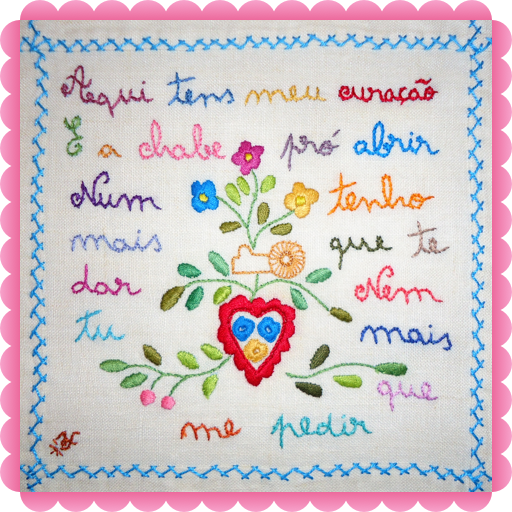 Aqui tens meu curação
E a chabe pró abrir
Num tenho
mais que te
dar Nem
tu mais
que
me pedir